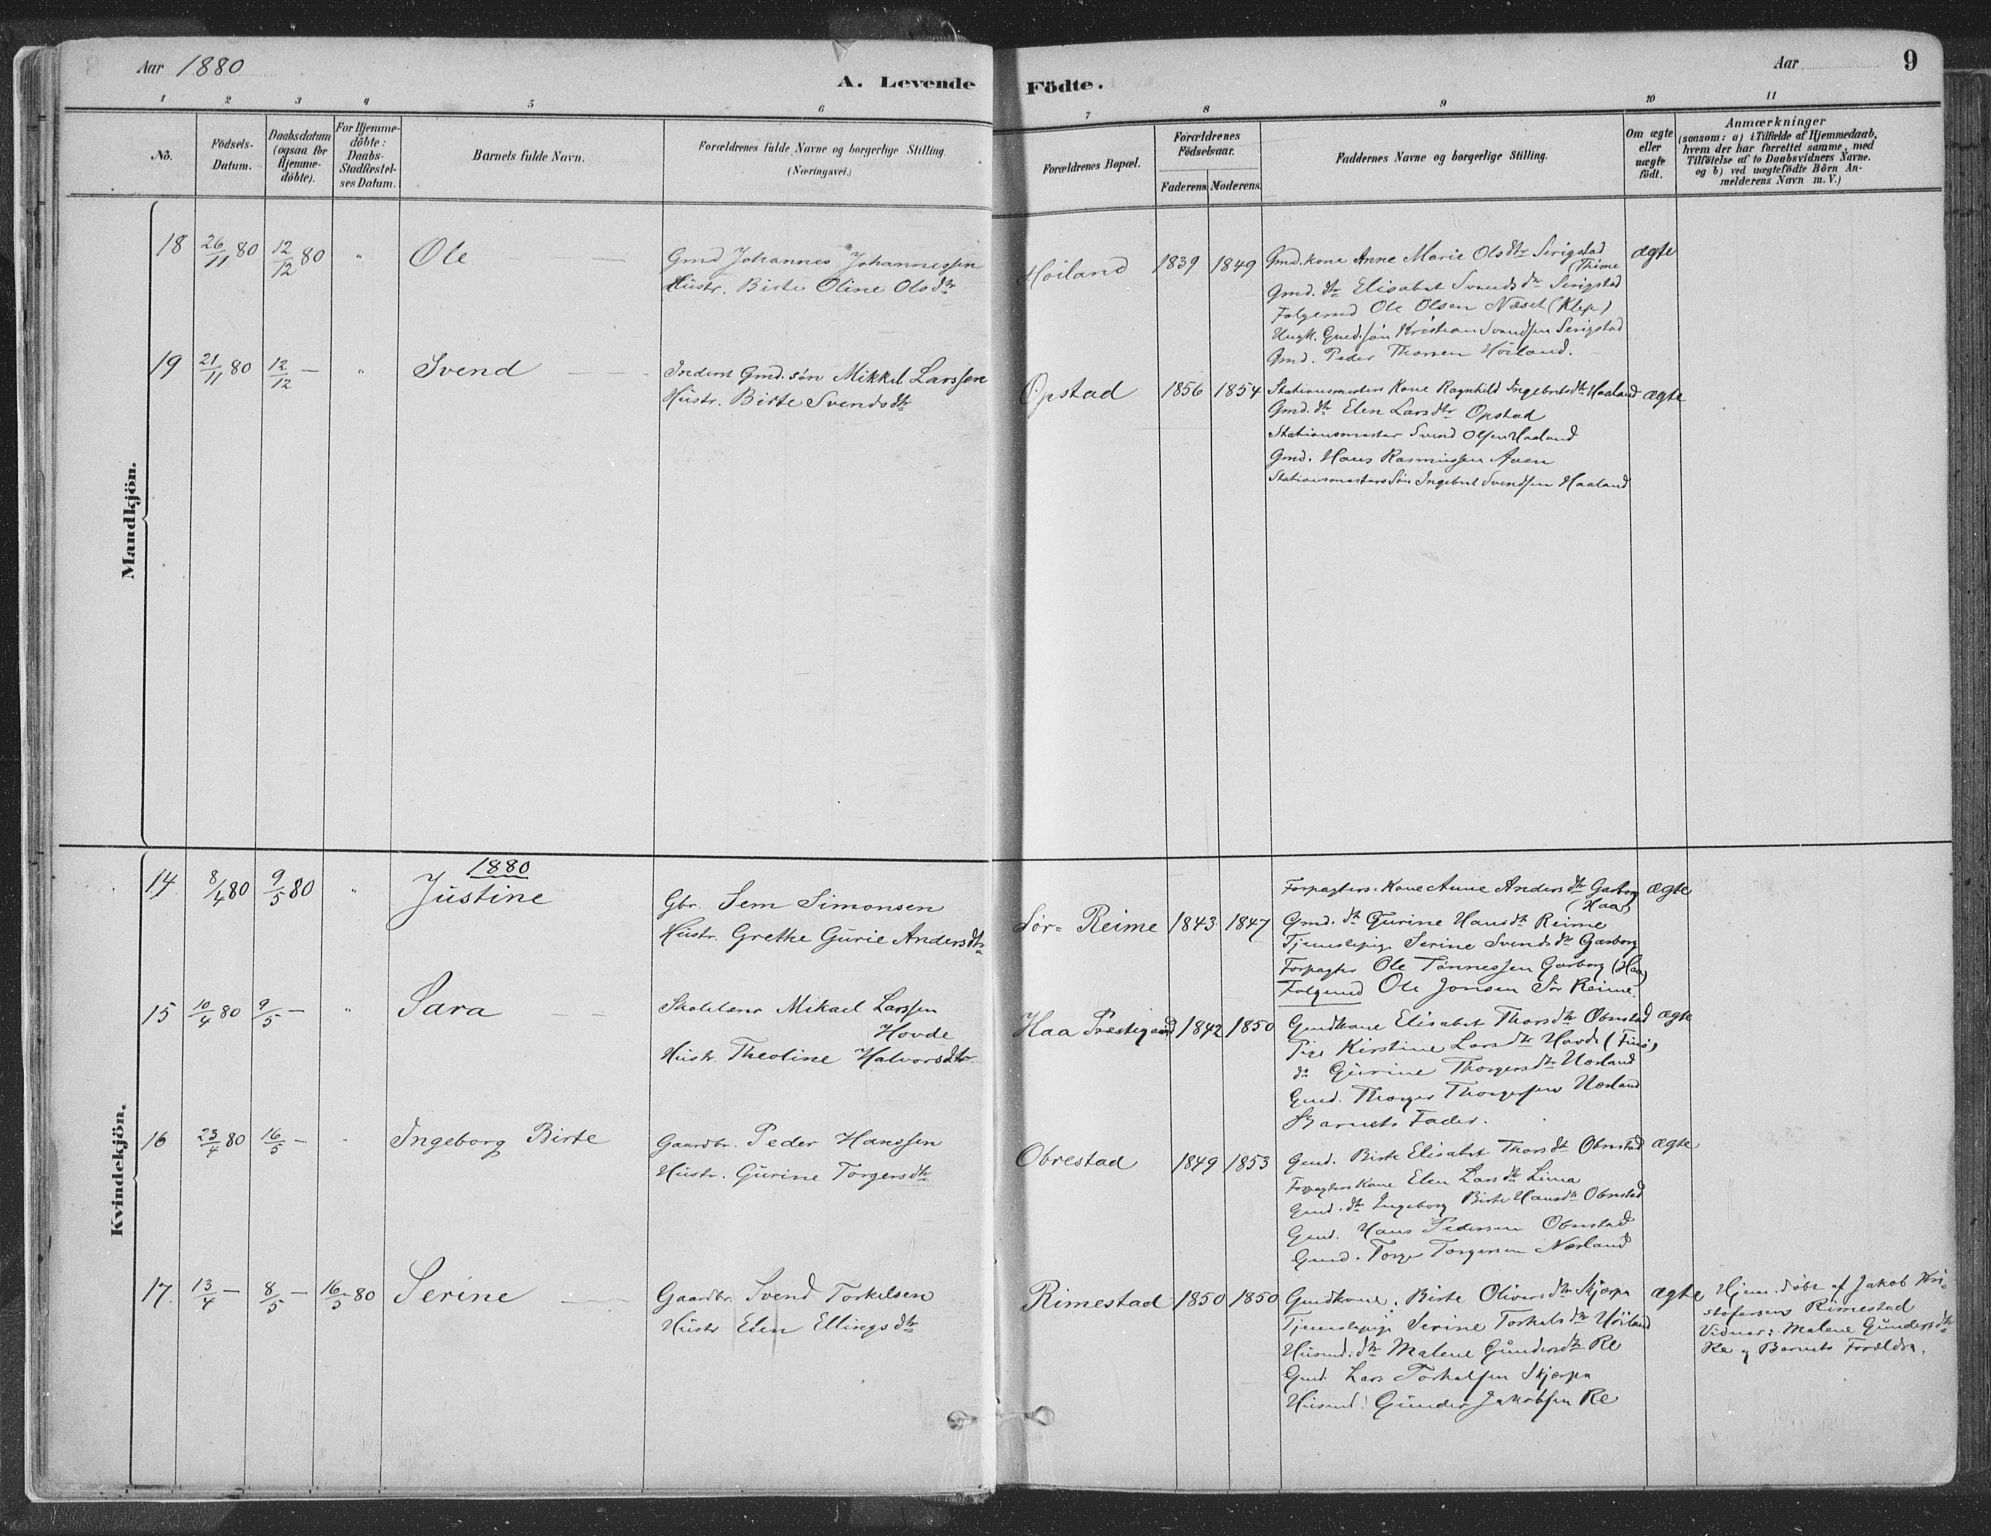 Aar 1880
A. Levende Födte.
Aar
9
1 2 3 4 5 6 7 8 9 10 11
No.
Födsels-Datum.
Daabsdatum (ogsaa for Hjemme-döbte).
For Hjemme-döbte: Daabs-Stadfæstel-ses Datum.
Barnets fulde Navn.
Forældrenes fulde Navne og borgerlige Stilling.
(Næringsvei.)
Forældrenes Bopæl.
Forældrenes Födselsaar.
Faderens. Moderens.
Faddernes Navne og borgerlige Stilling.
Om ægte eller uægte födt.
Anmærkninger
(saasom: a) i Tilfælde af Hjemmedaab,
hvem der har forrettet samme, med
Tilföielse af to Daabsvidners Navne.
og b) ved uægtefödte Börn An-
melderens Navn m. V.)
Mandkjön.
18 26/11 80 12/12 80 " Ole
Gmd Johannes Johannessen
Hustr. Birte Oline Olsdtr
Höiland 1839 1849
Gmd.kone Anne Marie Olsdtr Serigstad
(Thime
Gmd. dtr Elisabet Svendsdtr Serigstad
Ole Olsen Næset (Klep)
Ungk. Gmd.sön Kristian Svendsen Serigstad
Gmd. Peder Thorsen Höiland.
ægte
19 21/11 80 12/12 — " Svend
Inderst Gmd.sön Mikkel Larssen
Hustr. Birte Svendsdtr
Opstad 1856 1854
Stationsmesters Kone Ragnhild Ingebretsdtr Haaland
Gmd. dtr Elen Larsdtr Opstad
Stationsmester Svend Olsen Haaland
Gmd. Hans Rasmussen Aaen
Stationsmesters Sön Ingebret Svendsen Haaland
ægte
Kvindekjön.
1880
14 8/4 80 9/5 80 " Justine
Gbr. Sem Simonsen
Hustr. Grethe Gurie Andersdtr
Sör-Reime 1843 1847
Forpagters Kone Anne Andersdtr Garborg
(Haa)
Gmd. dtr Gurine Hansdtr Reime
Tjenestepige Serine Svendsdtr Garborg
Forpagter Ole Tönnessen Garborg (Haa)
Ole Jonsen Sör Reime.
ægte
15 10/4 80 9/5 — " Sara
Skolelærer Mikael Larssen
Hovde
Hustr. Theoline Halvorsdtr
Haa Præstegaard 1842 1850
Gmdkone Elisabet Thorsdtr Obrestad
Pige Kirstine Larsdtr Hovde
do Gurine Thorgersdtr Nærland
Gmd. Thorger Thorgersen Nærland
Barnets Fader.
ægte
16 23/4 80 16/5 — " Ingeborg Birte
Gaardbr. Peder Hanssen
Hustr. Gurine Torgersdtr
Obrestad 1849 1853
Gmd. Birte Elisabet Thorsdtr Obrestad
Forpagters Kone Elen Larsdtr Lima
Gmd. dtr Ingeborg Birte Hansdtr Obrestad
Gmd. Hans Pedersen Obrestad
Gmd. Torger Torgersen Nærland
ægte
17. 13/4 — 8/5 — 16/5 80 Serine
Gaardbr. Svend Torkelsen
Hustr Elen Ellingsdtr
Rimestad 1850 1850
Gmdkone. Birte Oliversdtr Skjærpe
Tjenestepige Serine Torkelsdtr Höiland
Husmd. dtr Malene Gundersdtr Re
Gmd. Lars Torkelsen Skjærpe
Husmd. Gunder Jakobsen Re
ægte
Hjem.döbt af Jakob Kri-
stofersen Rimestad
Vidner: Malene Gundersdtr
Re og Barnets Forældre.